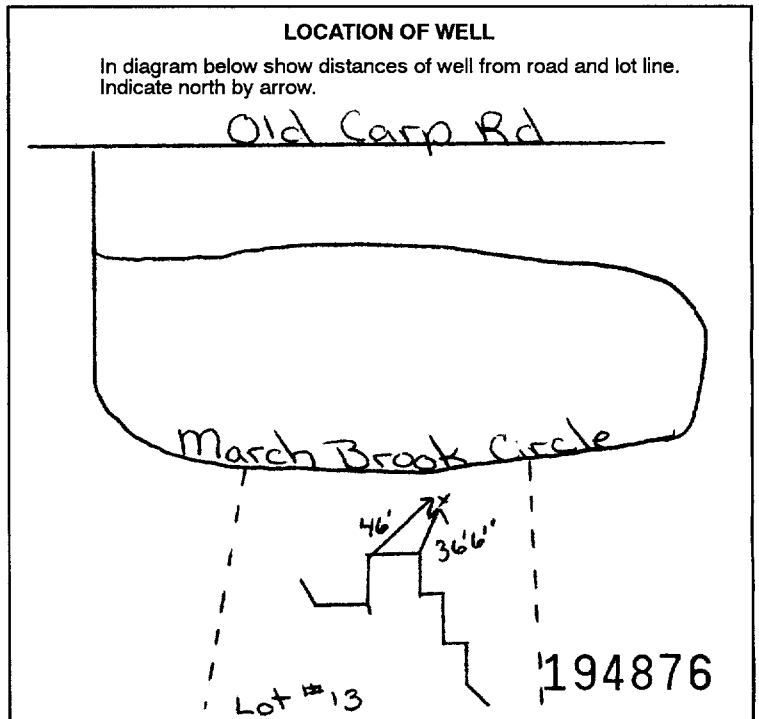 LOCATION OF WELL
In diagram below show distances of well from road and lot line.
Indicate north by arrow.
Old Carp Rd
March Brook Circle
x
46'
36'6"
Lot #13
194876